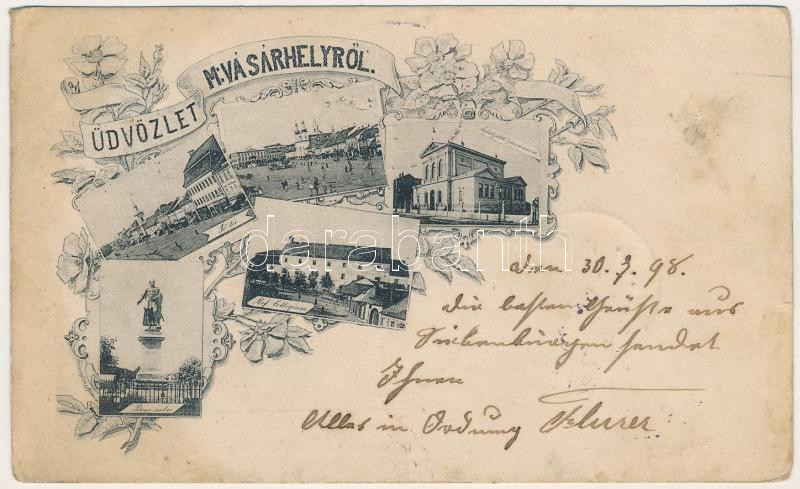 ÜDVÖZLET
M:VÁSÁRHELYRŐL.
Fő tér
Ref. Collegium
Bem szobor
darabanth
den 30. 7. 98.
die besten Grüße aus
Siebenbürgen sendet
Ihnen
Alles in Ordnung